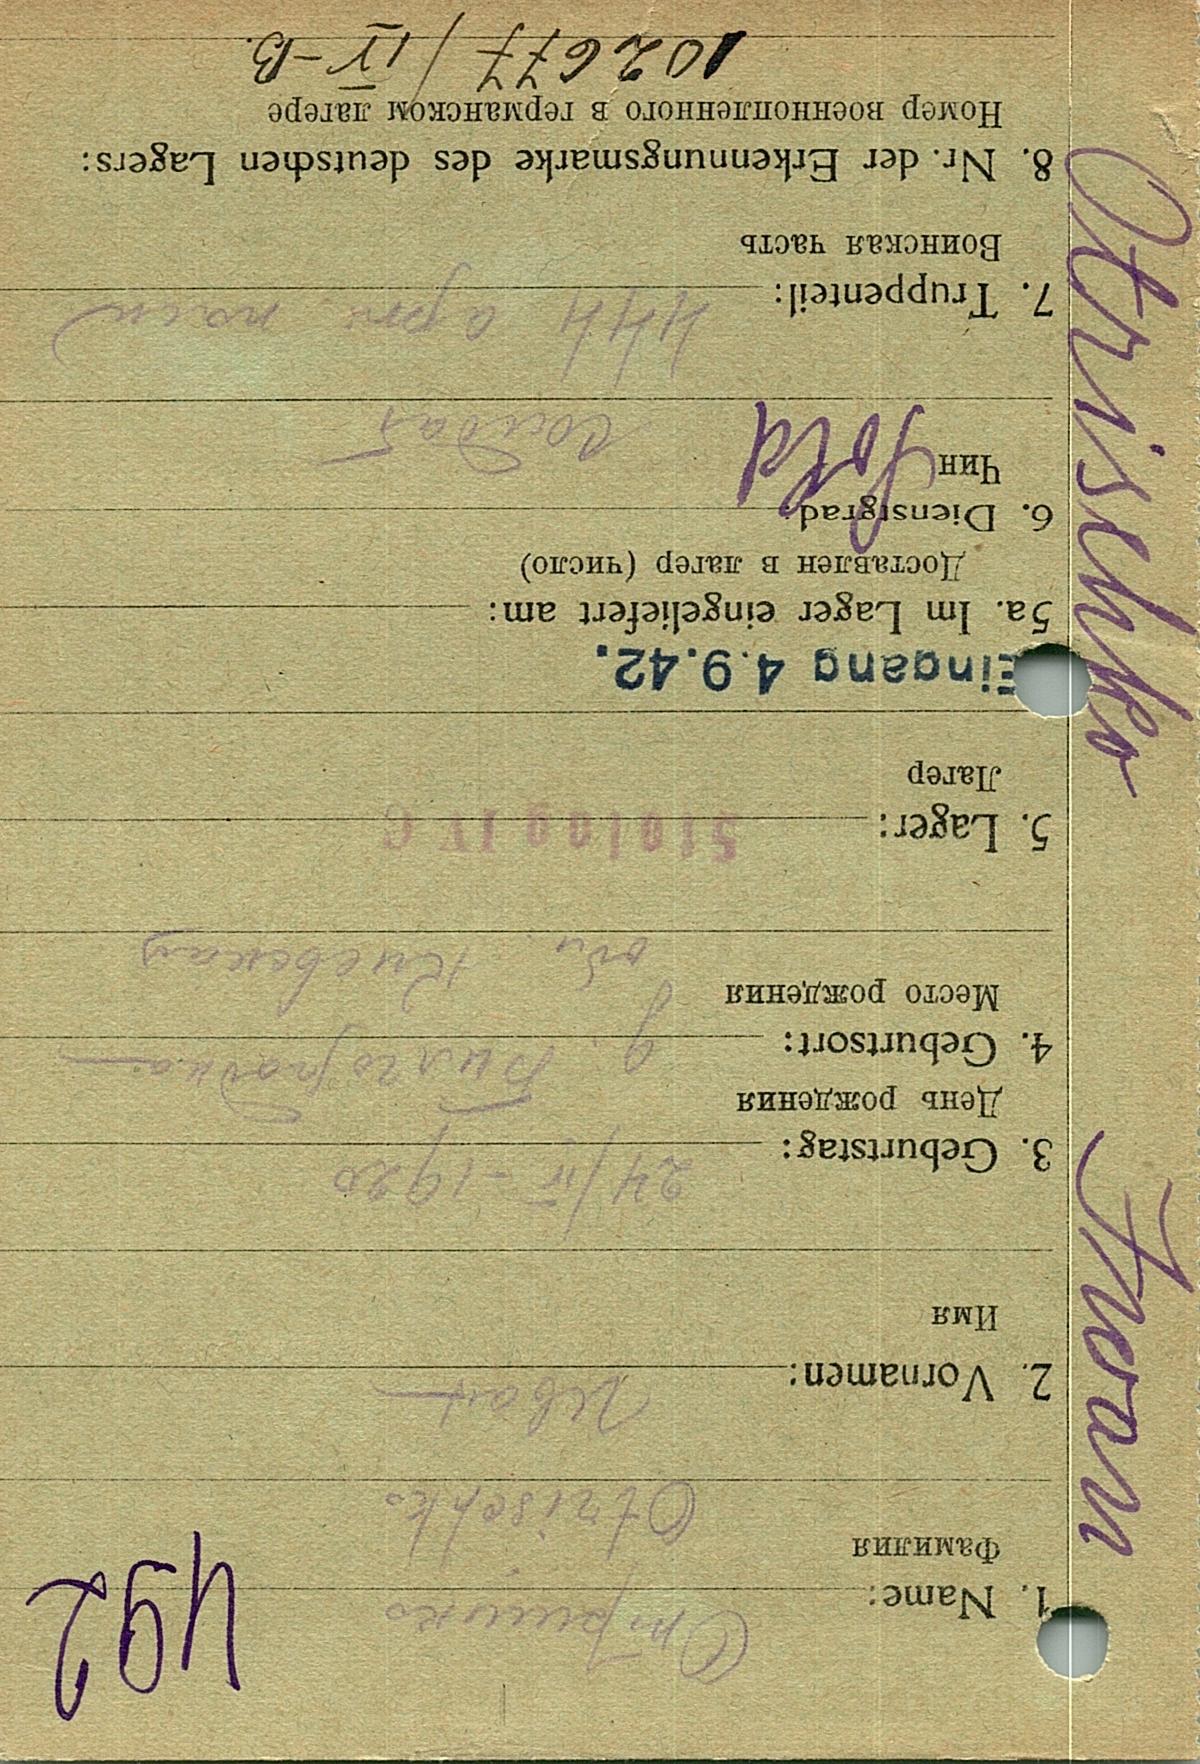 492
1. Name: Отришко
Фамилия
Otrischko
2. Vornamen: Иван
Имя
3. Geburtstag: 24/IV-1920
День рождения
4. Geburtsort:
Место рождения
обл. Киевская
5. Lager: Stalag IV C
Лагер
Eingang 4.9.42.
5a. Im Lager eingeliefert am:
Доставлен в лагер (число)
6. Dienstgrad: Sold
Чин солдат
7. Truppenteil: 444
Воинская часть
8. Nr. der Erkennungsmarke des deutschen Lagers:
Номер военнопленного в германском лагере
102677/IV-B.
Otrischko Iwan